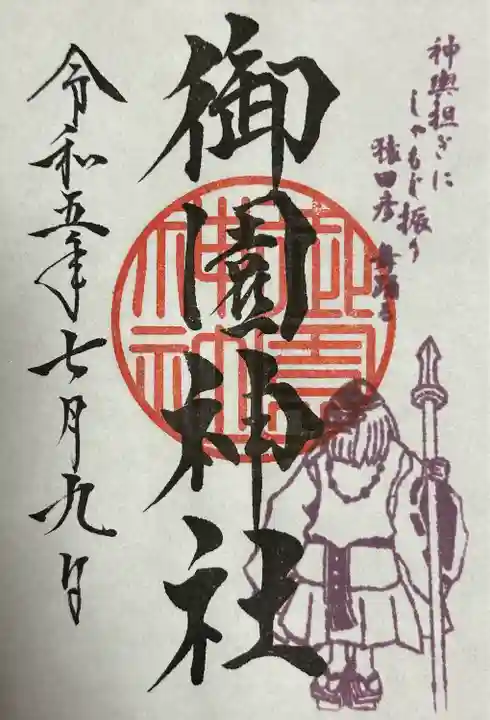 神輿担ぎに
しゃもじ振り
猿田彦
御園神社
令和五年七月九日